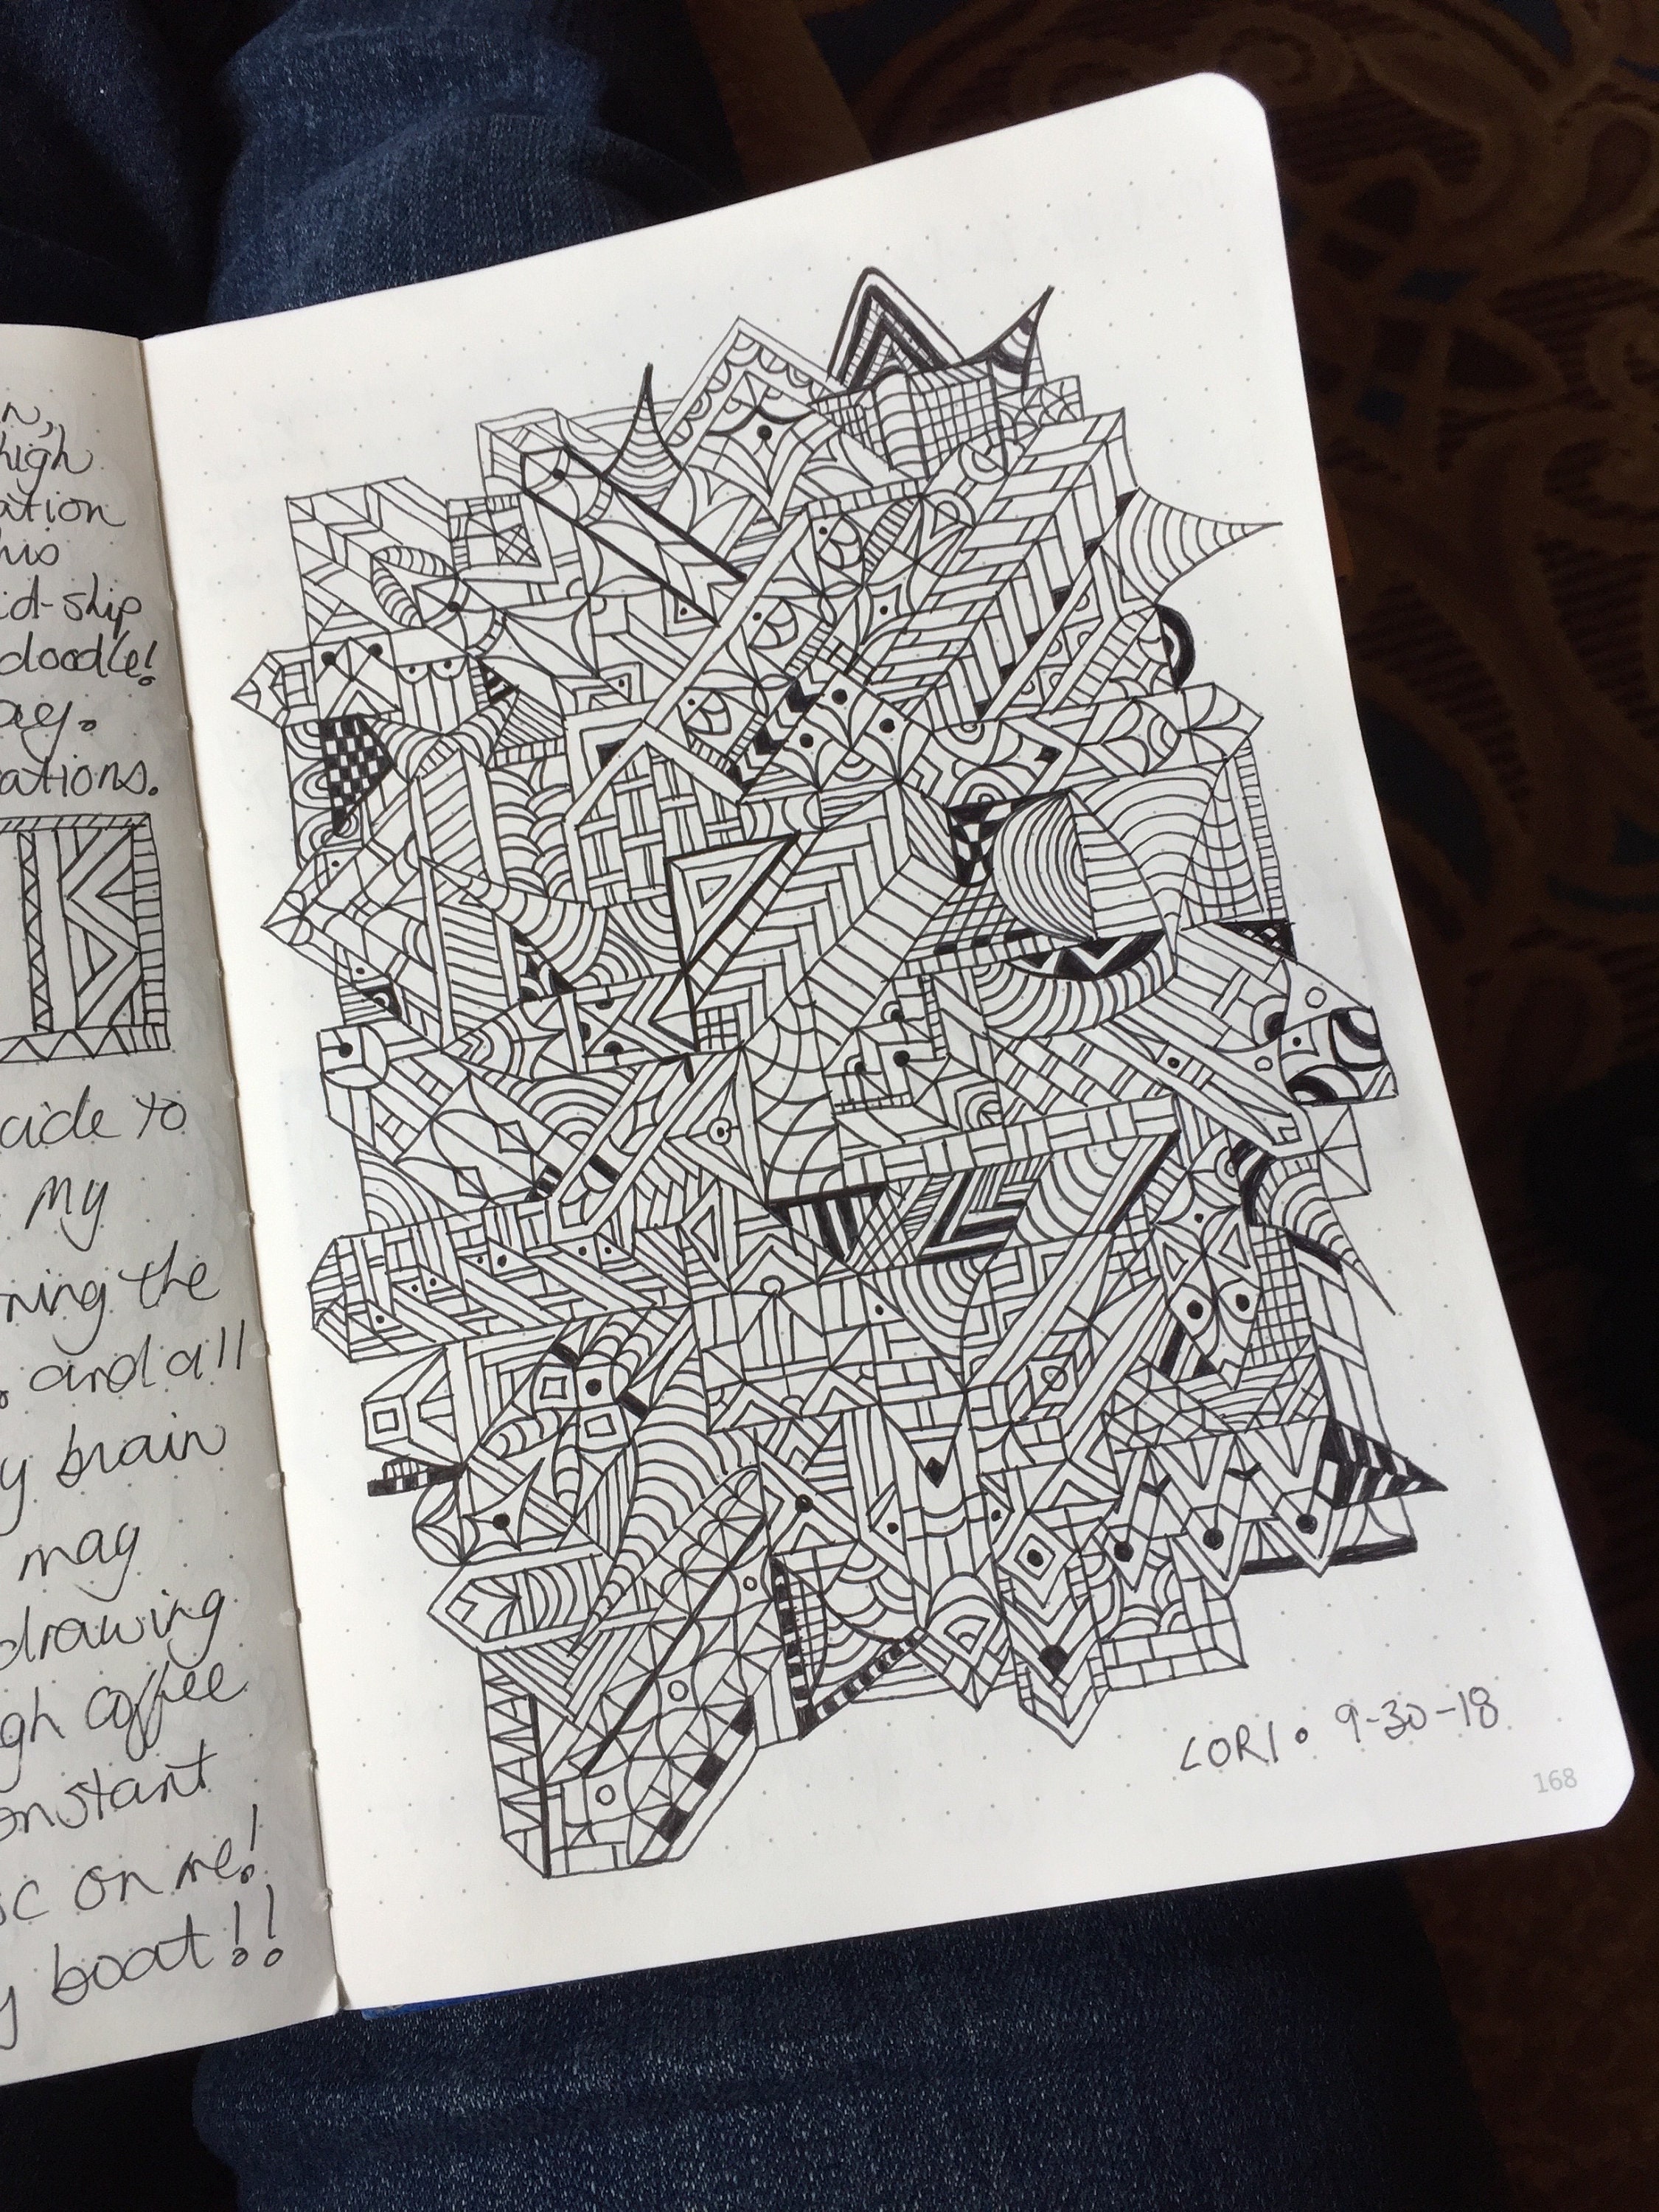 high
ation
his
id-ship
doodle!
ay.
rations.
ade to
my
ning the
and all
y brain
mag
drawing
gh coffee
onstant
ic on me!
y boat!!
LORI • 9-30-18
168